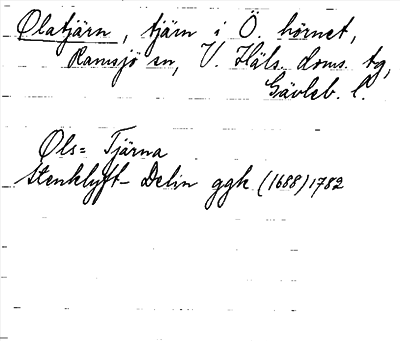 Olatjärn, tjärn i Ö. hörnet,
Ramsjö sn, V. Häls. doms. tg,
Gävleb. l.
Ols= Tjärna
Stenklyft- Delin ggk (1688) 1782